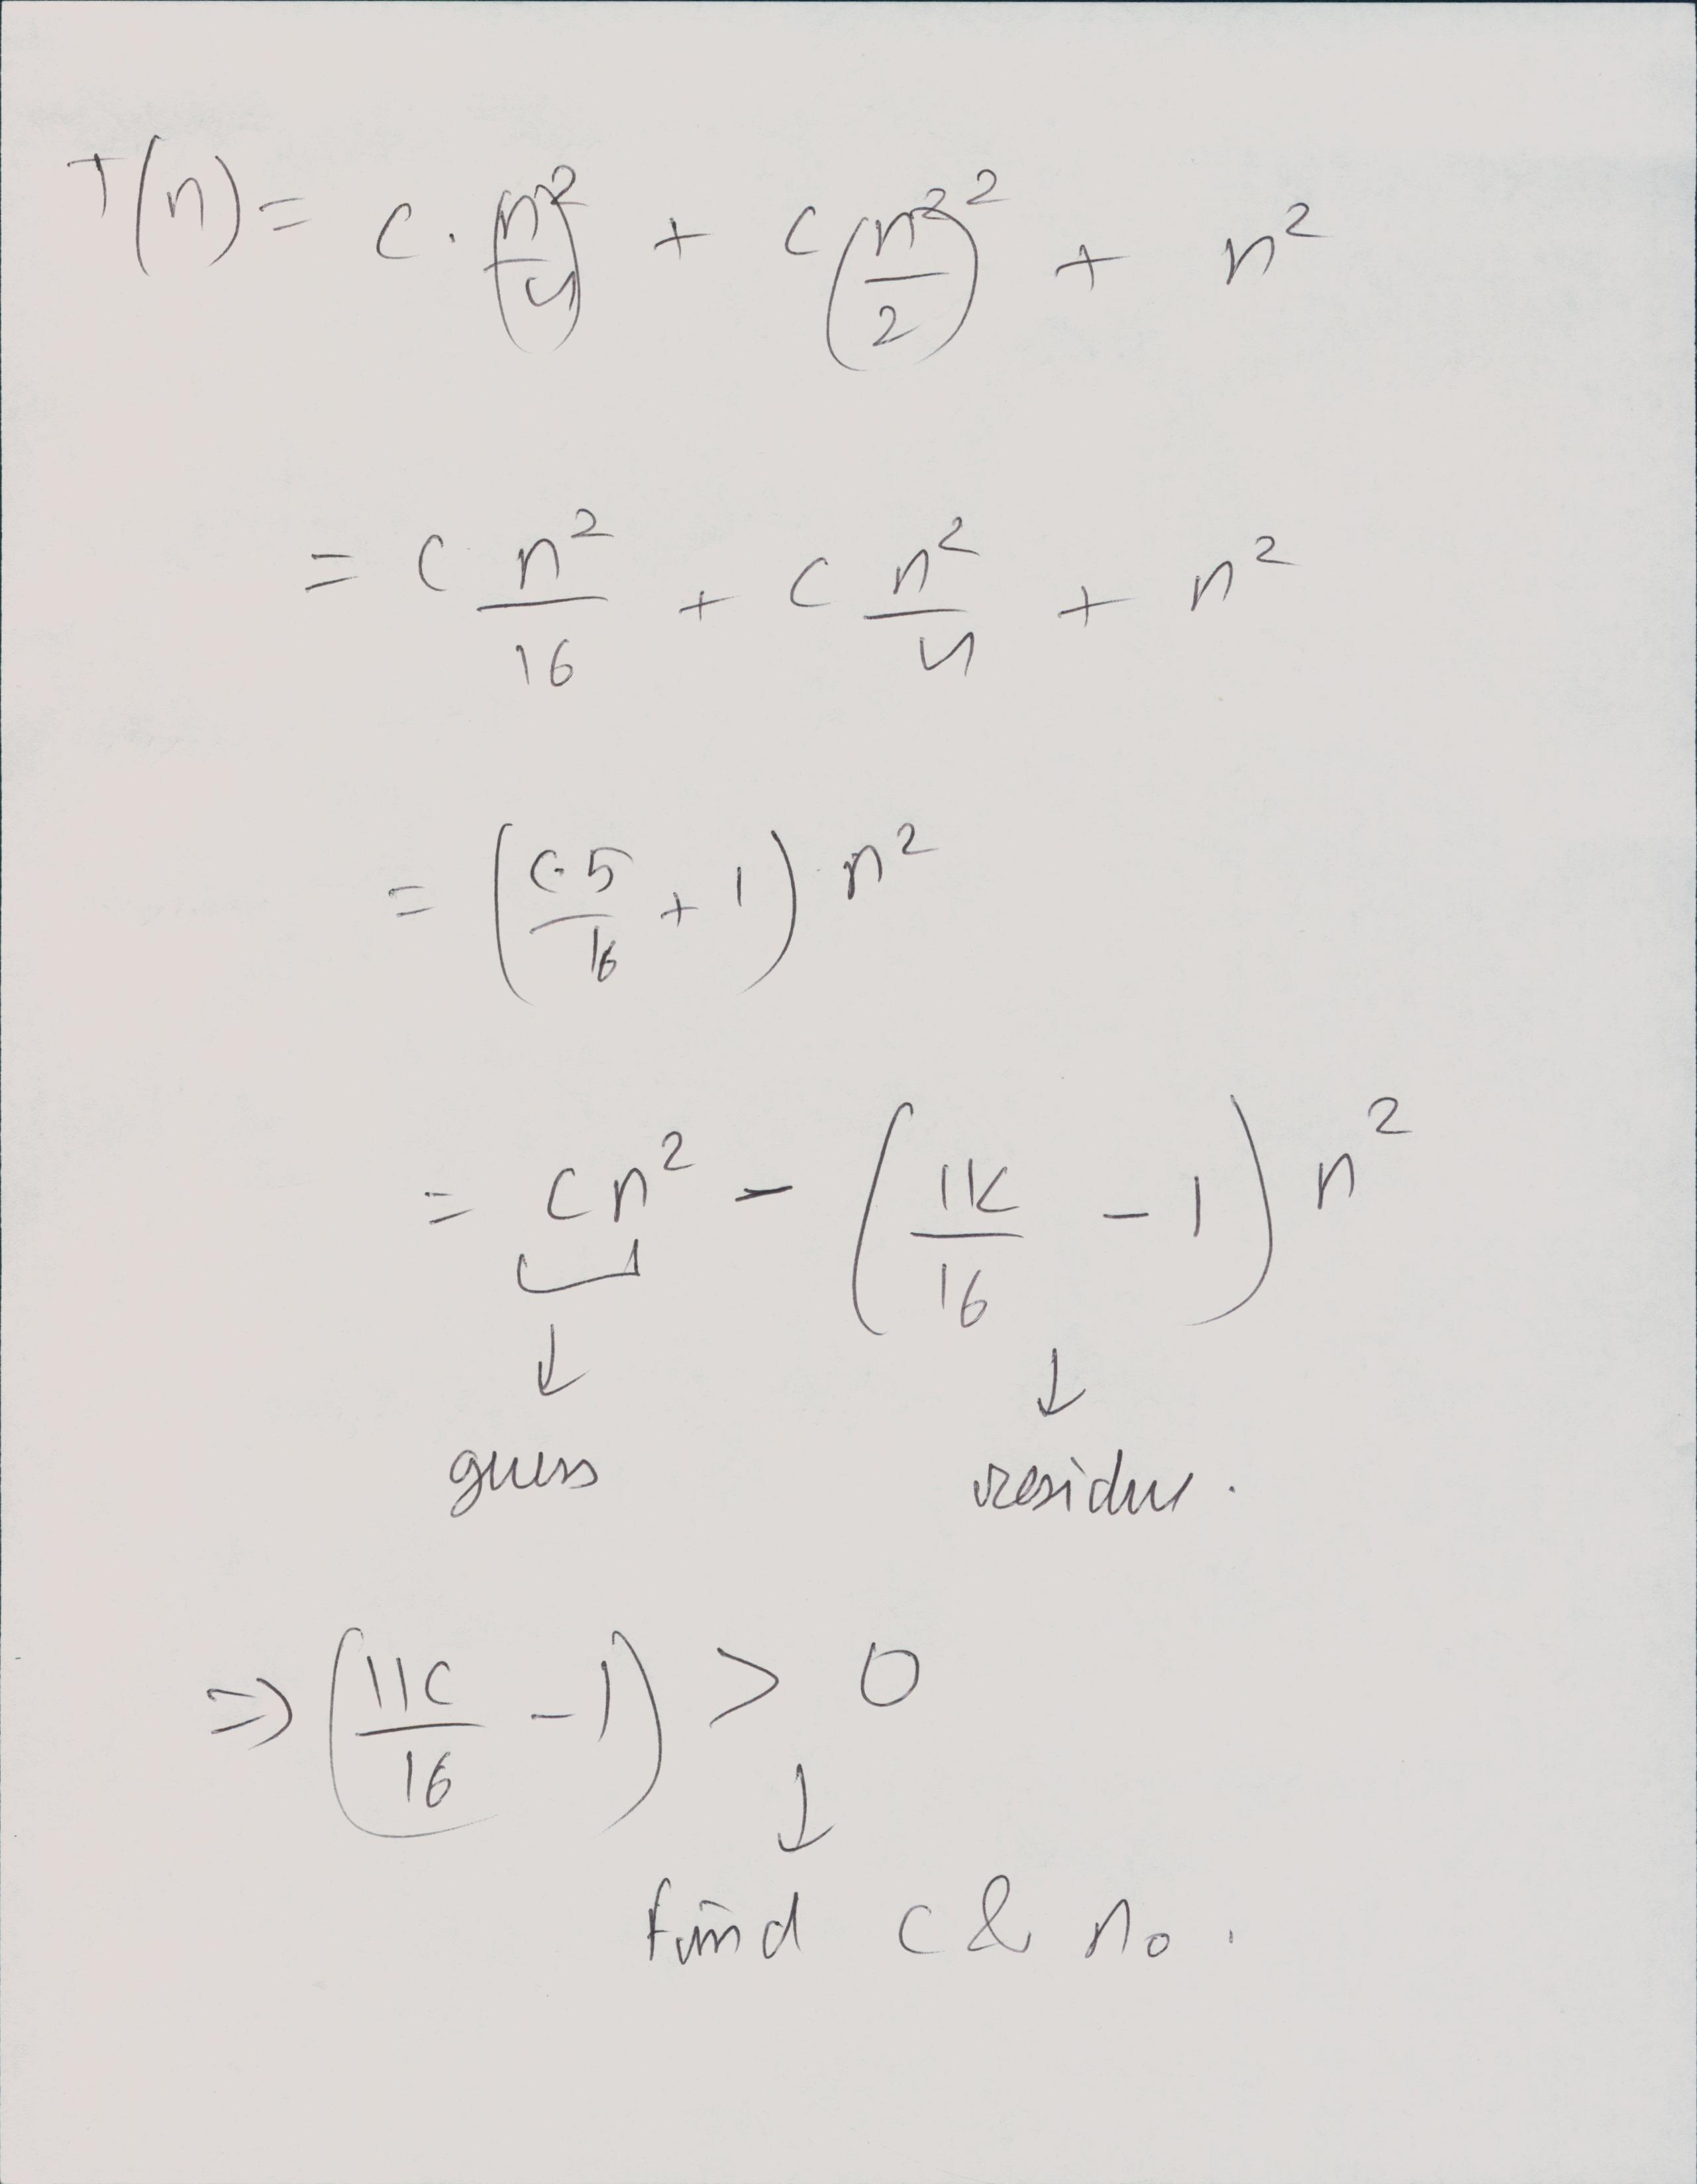 T(n) = c · (n/4)² + c (n²/2)² + n²
= c n²/16 + c n²/4 + n²
= (c·5/16 + 1) n²
= cn² - (11c/16 - 1) n²
↓ ↓
guess residue.
⇒ (11c/16 - 1) > 0
↓
find c & n₀.